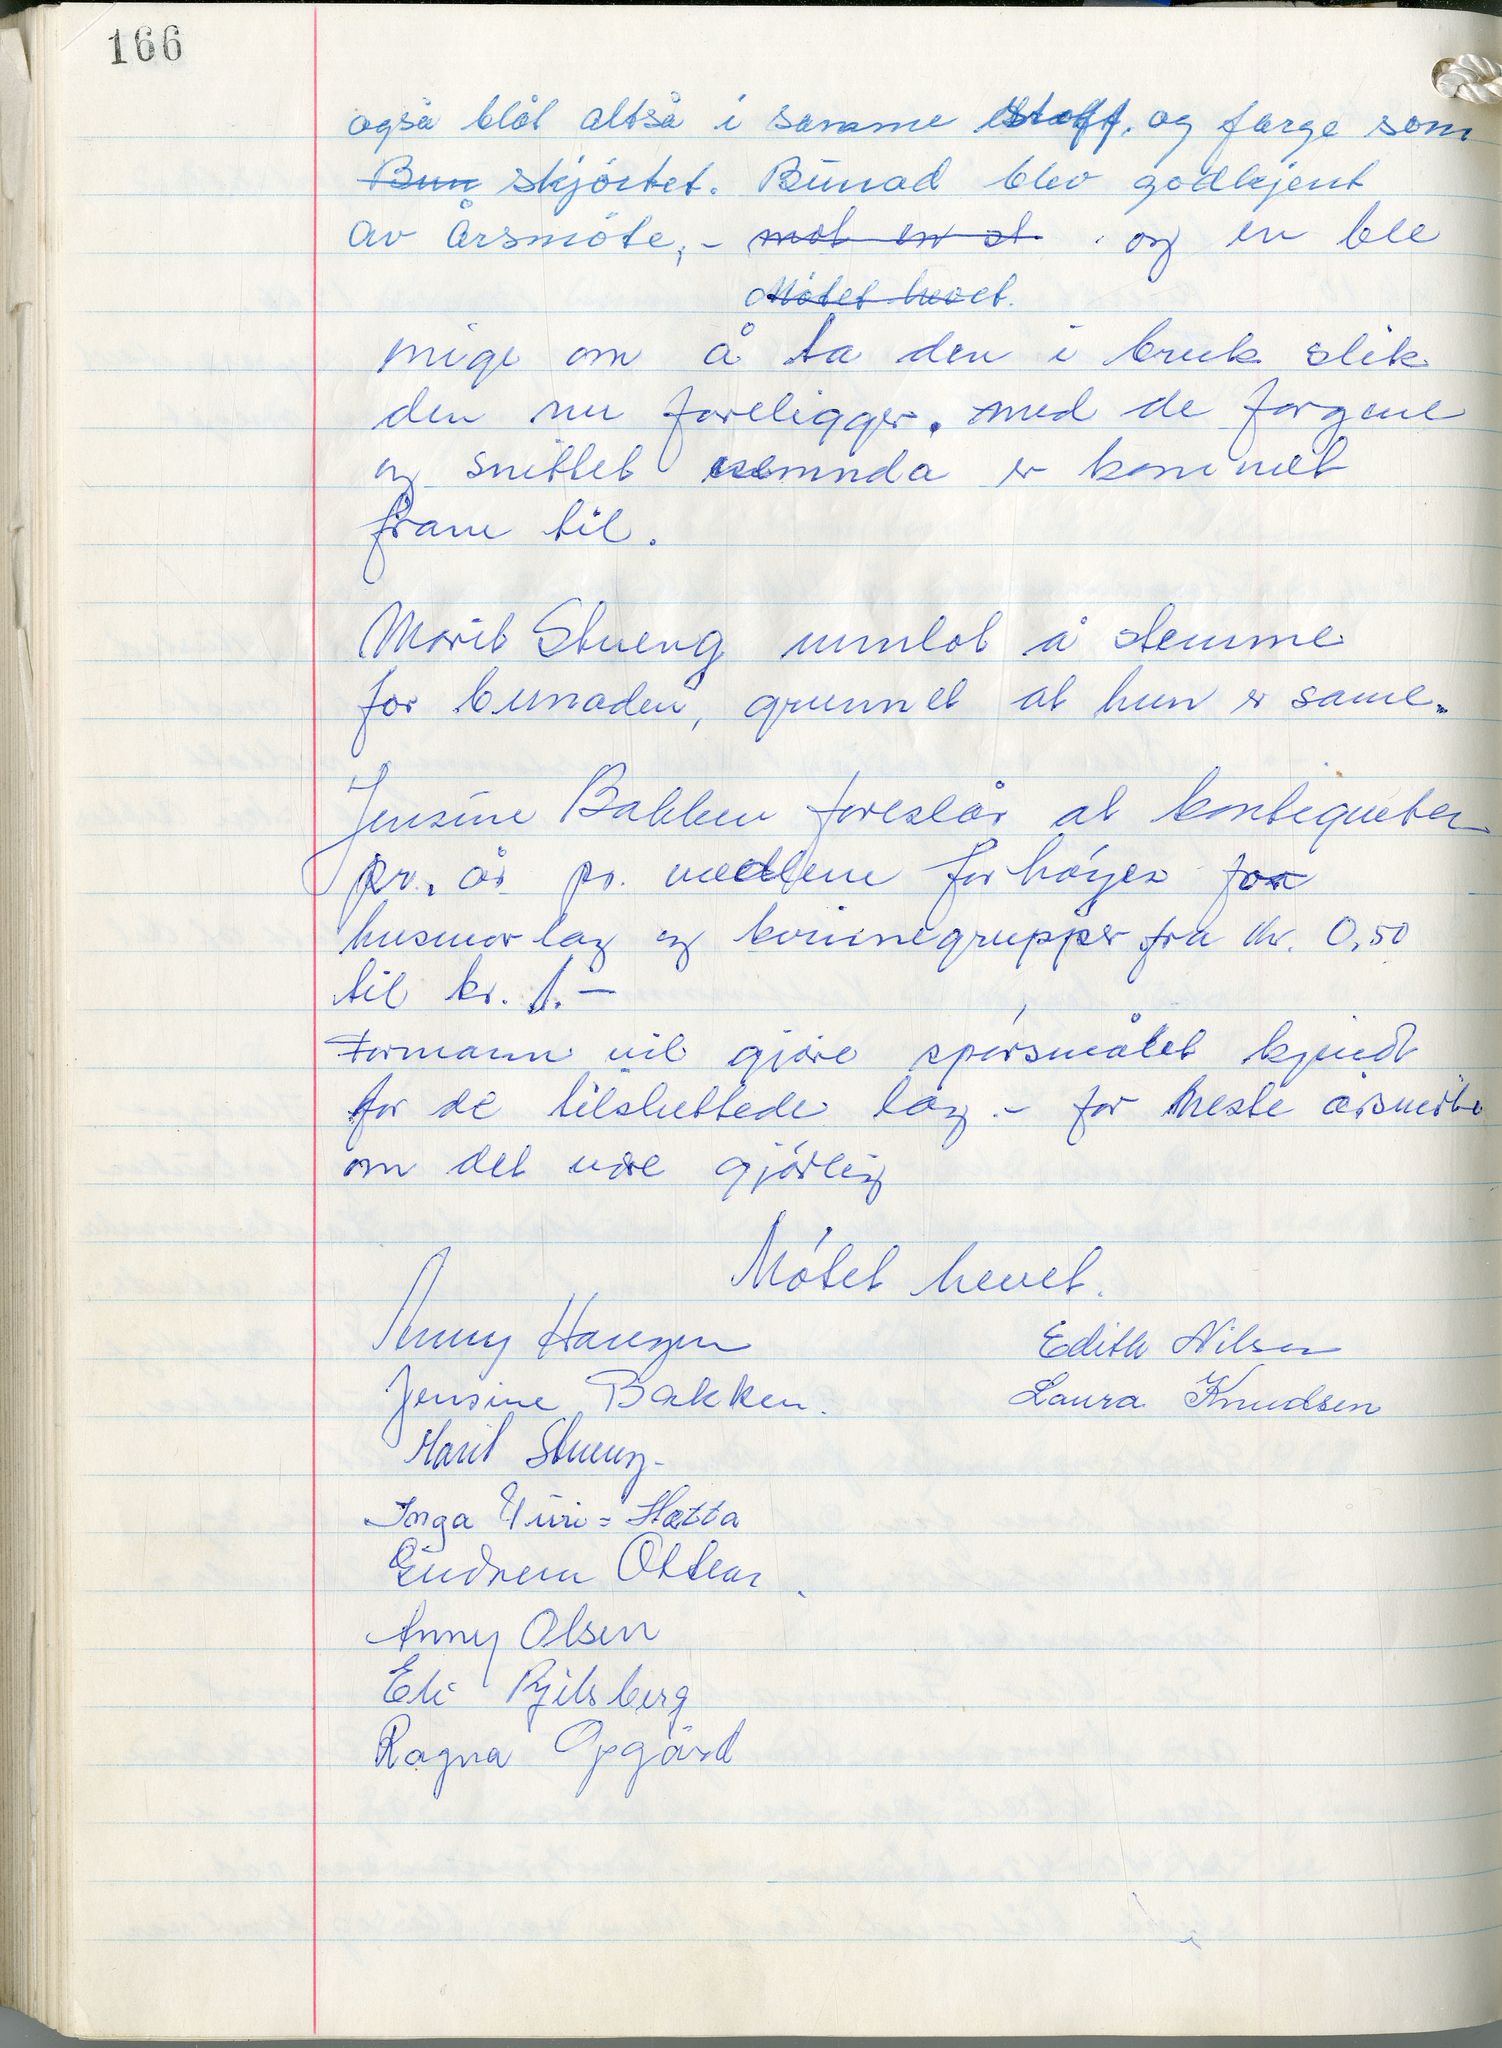 166
også blåt altså i samme stoff. og farge som
Bun skjörtet. Bunad blev godkjent
av Årsmöte, - mot en st. og en ble
Mötet hevet.
enige om å ta den i bruk slik
den nu foreligger. med de fargene
og snittet nemnda er kommet
fram til.
Marit Stueng unnlot å stemme
for bunaden, grunnet at hun er same.
Jensine Bakken foreslår at kontigenten
pr. år pr. medlem forhöyes for
husmorlag og kvinnegrupper fra kr. 0,50
til kr. 1.-
Formann vil gjöre spörsmålet kjendt
for de tilsluttede lag - for neste årsmöte
om det være gjörlig
Mötet hevet.
Anny Hansen
Edith Nilsen
Jensine Bakken.
Laura Knudsen
Marit Stueng
Inga Uuri = Hætta
Gudrun Ottar
Anny Olsen
Eli
Ragna Opgård